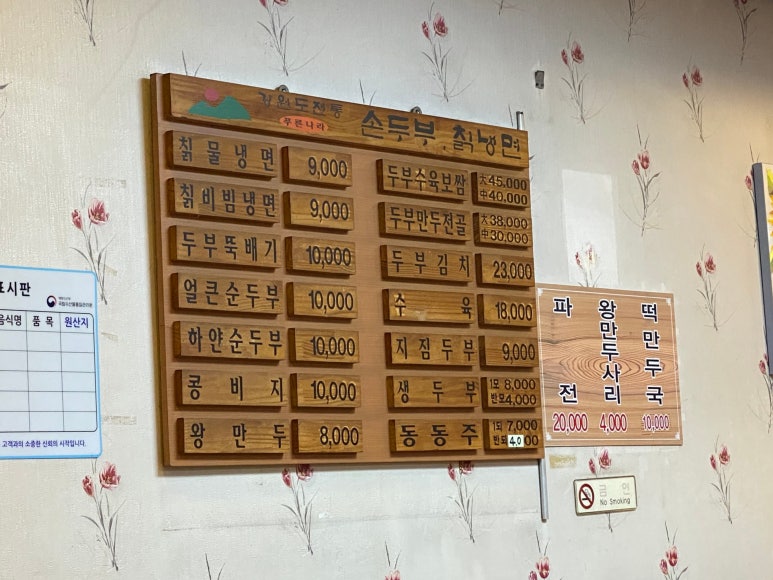 강원도전통
푸른나라
손두부, 칡냉면
칡물냉면 9,000
칡비빔냉면 9,000
두부뚝배기 10,000
얼큰순두부 10,000
하얀순두부 10,000
콩비지 10,000
왕만두 8,000
두부수육보쌈 大 45,000
中 40,000
두부만두전골 大 38,000
中 30,000
두부김치 23,000
수육 18,000
지짐두부 9,000
생두부 1모 8,000
반모 4,000
동동주 1되 7,000
반되 4,000
파전 20,000
왕만두사리 4,000
떡만두국 10,000
금연
No Smoking
표시판
국립농산물품질관리원
음식명 품목 원산지
고객과의 소중한 신뢰의 시작입니다.